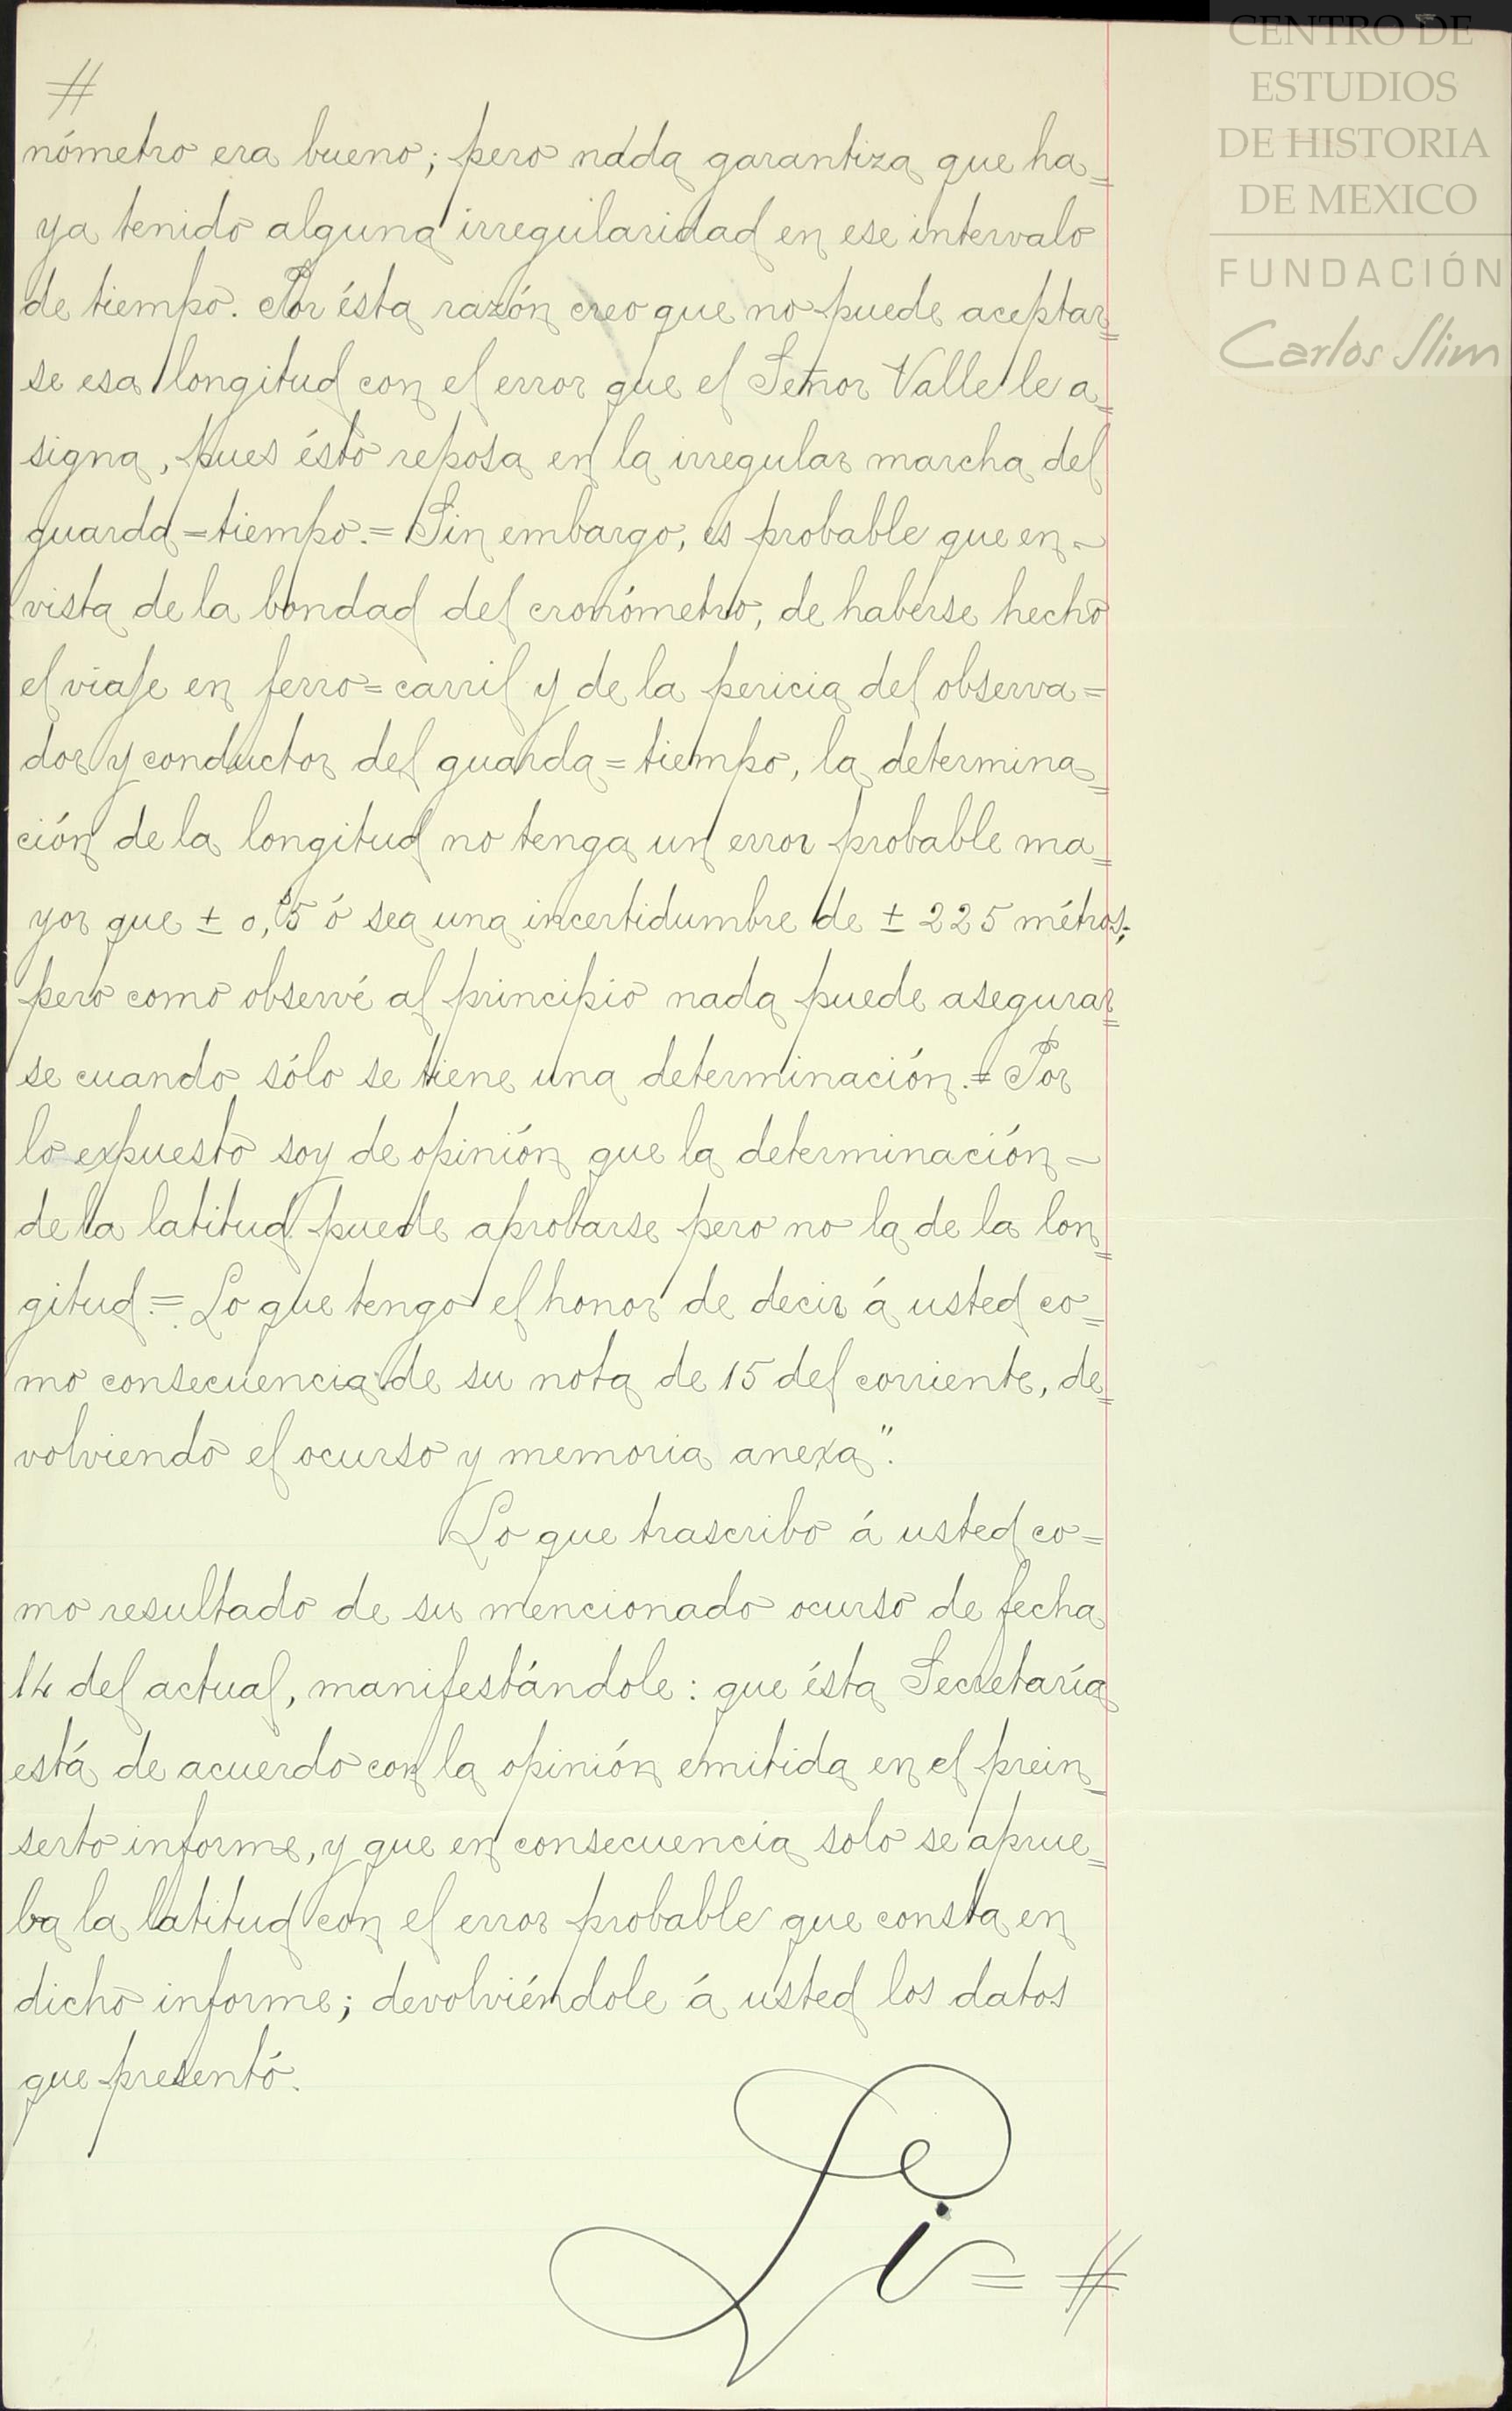 CENTRO DE
ESTUDIOS
DE HISTORIA
DE MEXICO
FUNDACIÓN
Carlos Slim
#
nómetro era bueno; pero nada garantiza que ha=
ya tenido alguna irregularidad en ese intervalo
de tiempo. Por ésta razón creo que no puede aceptar=
se esa longitud con el error que el Señor Valle le a=
signa, pues ésto reposa en la irregular marcha del
guarda=tiempo.= Sin embargo, es probable que en-
vista de la bondad del cronómetro, de haberse hecho
el viaje en ferro=carril y de la pericia del observa=
dor y conductor del guarda=tiempo, la determina=
ción de la longitud no tenga un error probable ma=
yor que ± 0,ˢ5 ó sea una incertidumbre de ± 225 métros;
pero como observé al principio nada puede asegurar=
se cuando sólo se tiene una determinación.= Por
lo expuesto soy de opinión que la determinación-
de la latitud puede aprobarse pero no la de la lon=
gitud.= Lo que tengo el honor de decir á usted co=
mo consecuencia de su nota de 15 del corriente, de=
volviendo el ocurso y memoria anexa".
Lo que trascribo á usted co=
mo resultado de su mencionado ocurso de fecha
14 del actual, manifestándole: que ésta Secretaría
está de acuerdo con la opinión emitida en el prein=
serto informe, y que en consecuencia solo se aprue=
ba la latitud con el error probable que consta en
dicho informe; devolviéndole á usted los datos
que presentó.
Li= #